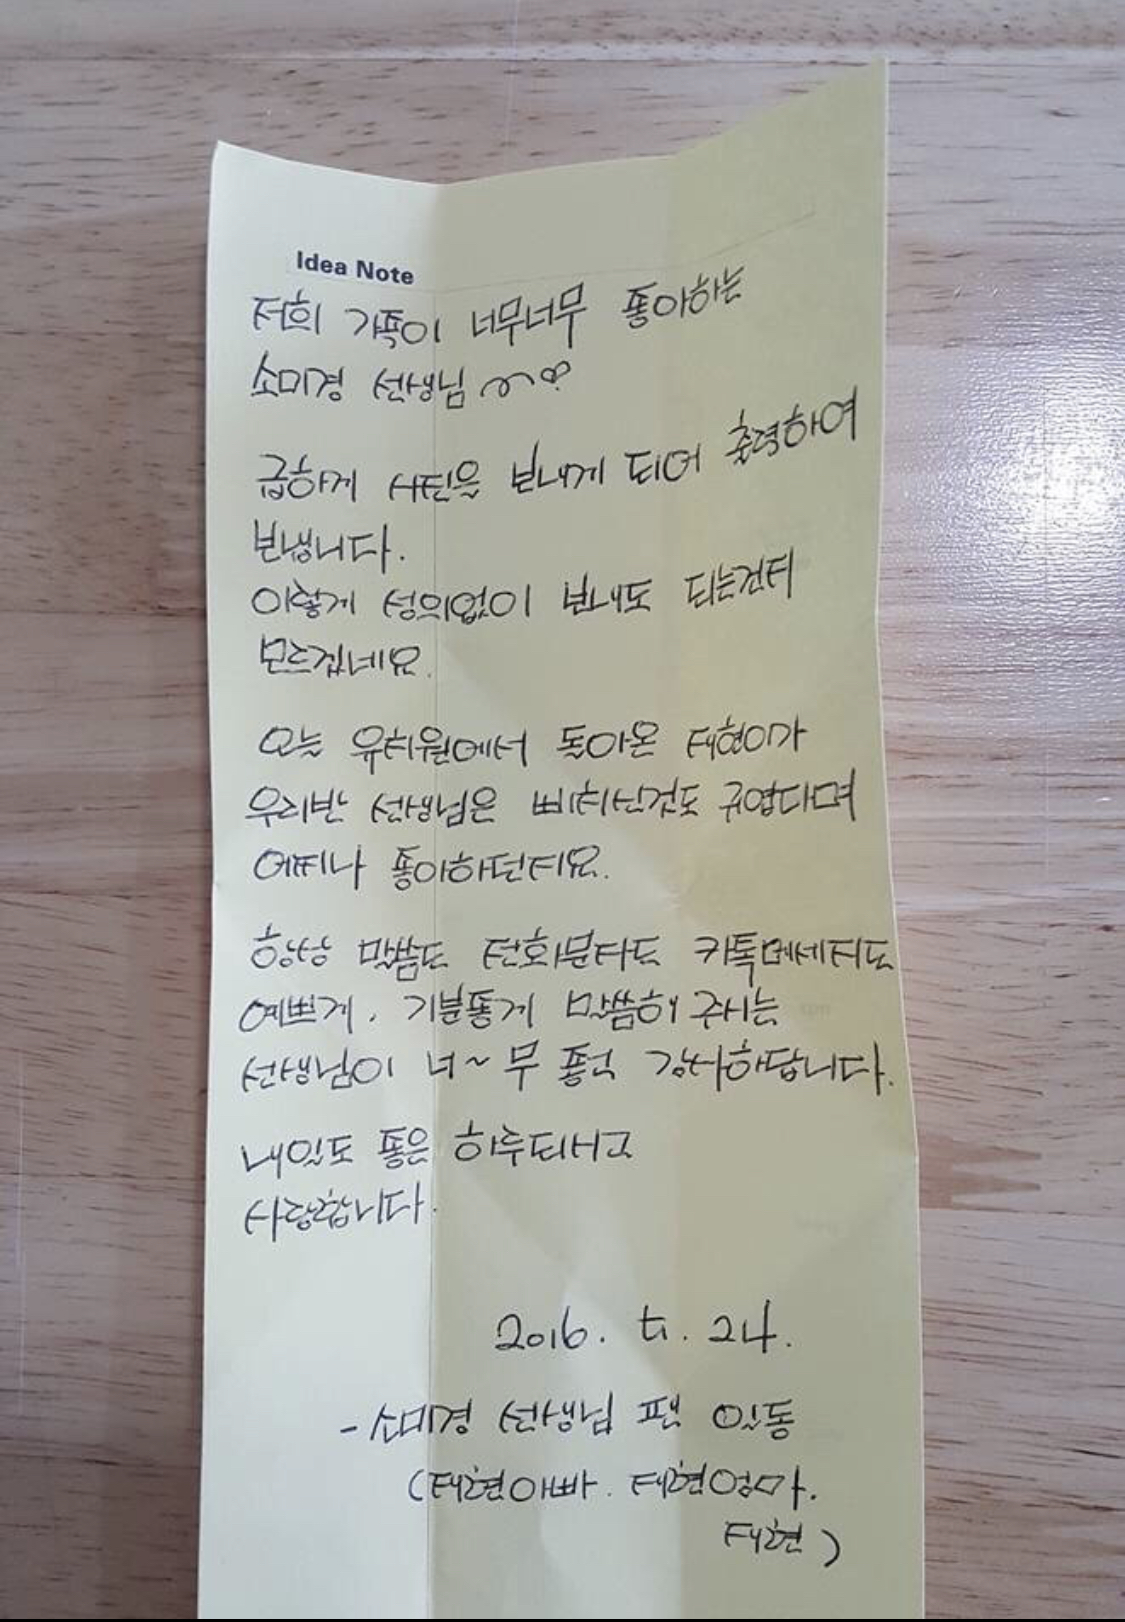 Idea Note
저희 가족이 너무너무 좋아하는
소미경 선생님
급하게 사진을 보내게 되어 출력하여
보냅니다.
이렇게 성의없이 보내도 되는건지
모르겠네요.
오늘 유치원에서 돌아온 태현이가
우리반 선생님은 삐치신것도 귀엽다며
어찌나 좋아하던지요.
항상 말씀도 전화문자도 카톡메세지도
예쁘게. 기분좋게 말씀해 주시는
선생님이 너~무 좋고 감사하답니다.
내일도 좋은 하루되시고
사랑합니다.
2016. 24.
- 소미경 선생님 팬 일동
(태현아빠. 태현엄마.
태현)